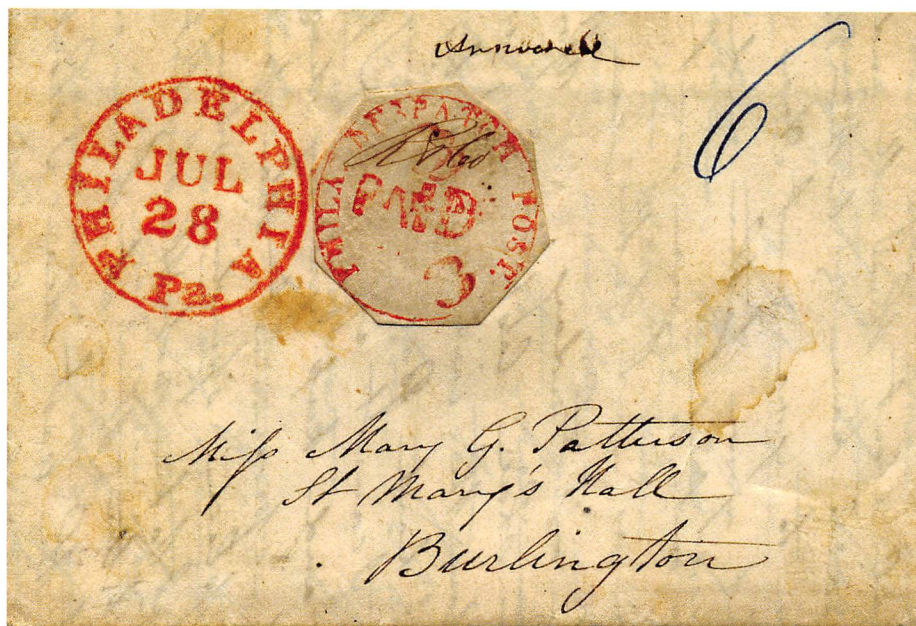 6
PHILADELPHIA
JUL
28
Pa.
PHILA DESPATCH POST
PAID
3
Miss Mary G. Patterson
St Mary's Hall
Burlington